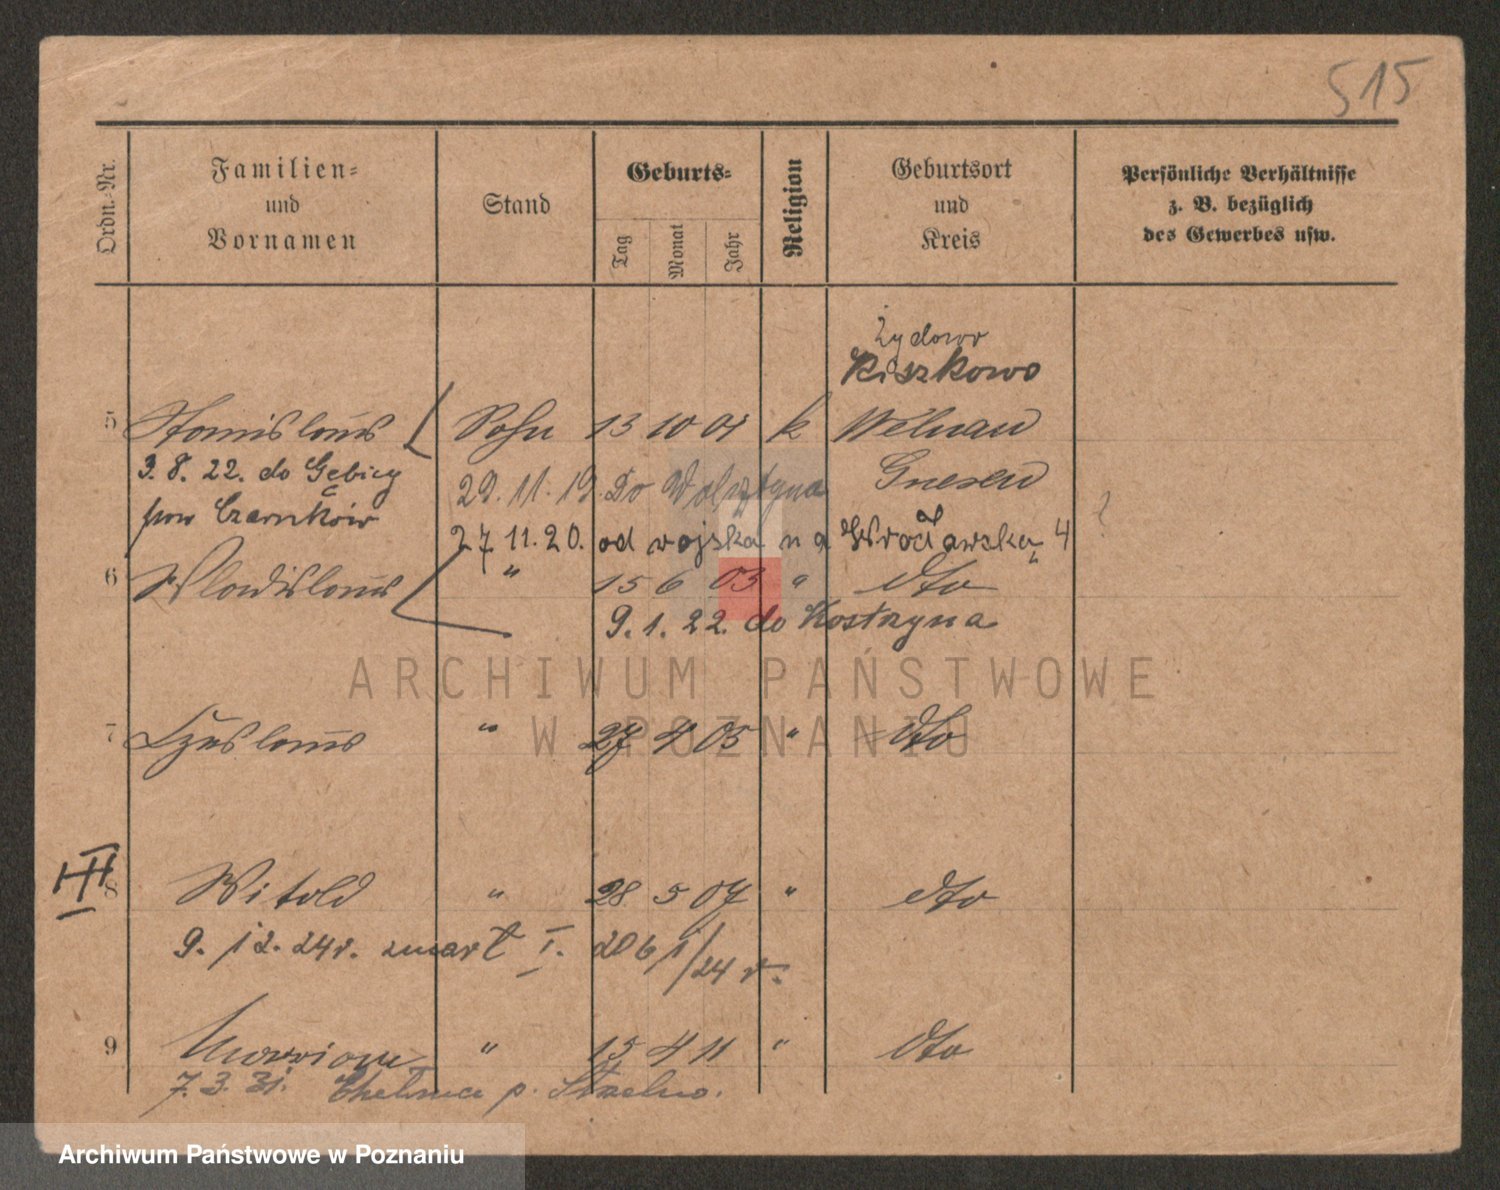 515
Ordn.-Nr.
Familien-
und
Vornamen
Stand
Geburts-
Tag
Monat
Jahr
Religion
Geburtsort
und
Kreis
Persönliche Verhältnisse
z. B. bezüglich
des Gewerbes usw.
Żydowo
Kiszkowo
5 Stanislaus Sohn 13 10 01 k Welnau
3. 8. 22. do Gębicy Gnesen
29. 11. 19. Do Wolsztyna
pow Czarnków
27 11. 20. od wojska na Wrocławska 4
?
6 Wladislaus " 15 6 03 " dto
9. 1. 22. do Kostrzyna
ARCHIWUM PAŃSTWOWE
W POZNANIU
7 Czeslaus " 27 4 05 " dto
III
8 Witold " 28 5 07 " dto
9. 12. 24 r. zmarł I. 206 /24 r.
9 " 15 4 11 " dto
7. 3. 31. p. Strzelno.
Archiwum Państwowe w Poznaniu